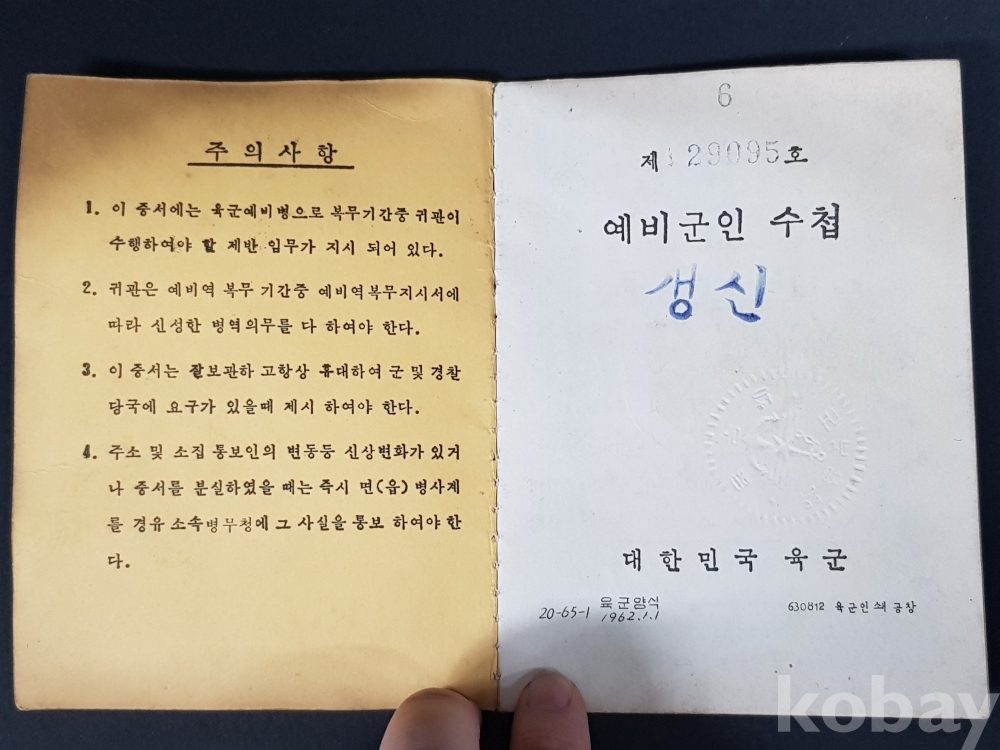 주의사항
1. 이 중서에는 육군예비병으로 복무기간중 귀관이
수행하여야 할 제반 임무가 지시 되어 있다.
2. 귀관은 예비역 복무 기간중 예비역복무지시서에
따라 신성한 병역의무를 다 하여야 한다.
3. 이 중서는 잘보관하 고항상 휴대하여 군 및 경찰
당국에 요구가 있을때 제시 하여야 한다.
4. 주소 및 소집 통보인의 변동등 신상변화가 있거
나 중서를 분실하였을 때는 즉시 면(읍) 병사계
를 경유 소속병무청에 그 사실을 통보 하여야 한
다.
6
제 29095호
예비군인 수첩
갱신
대한민국 육군
20-65-1 육군양식
1962.1.1
630812 육군인쇄공창
kobay